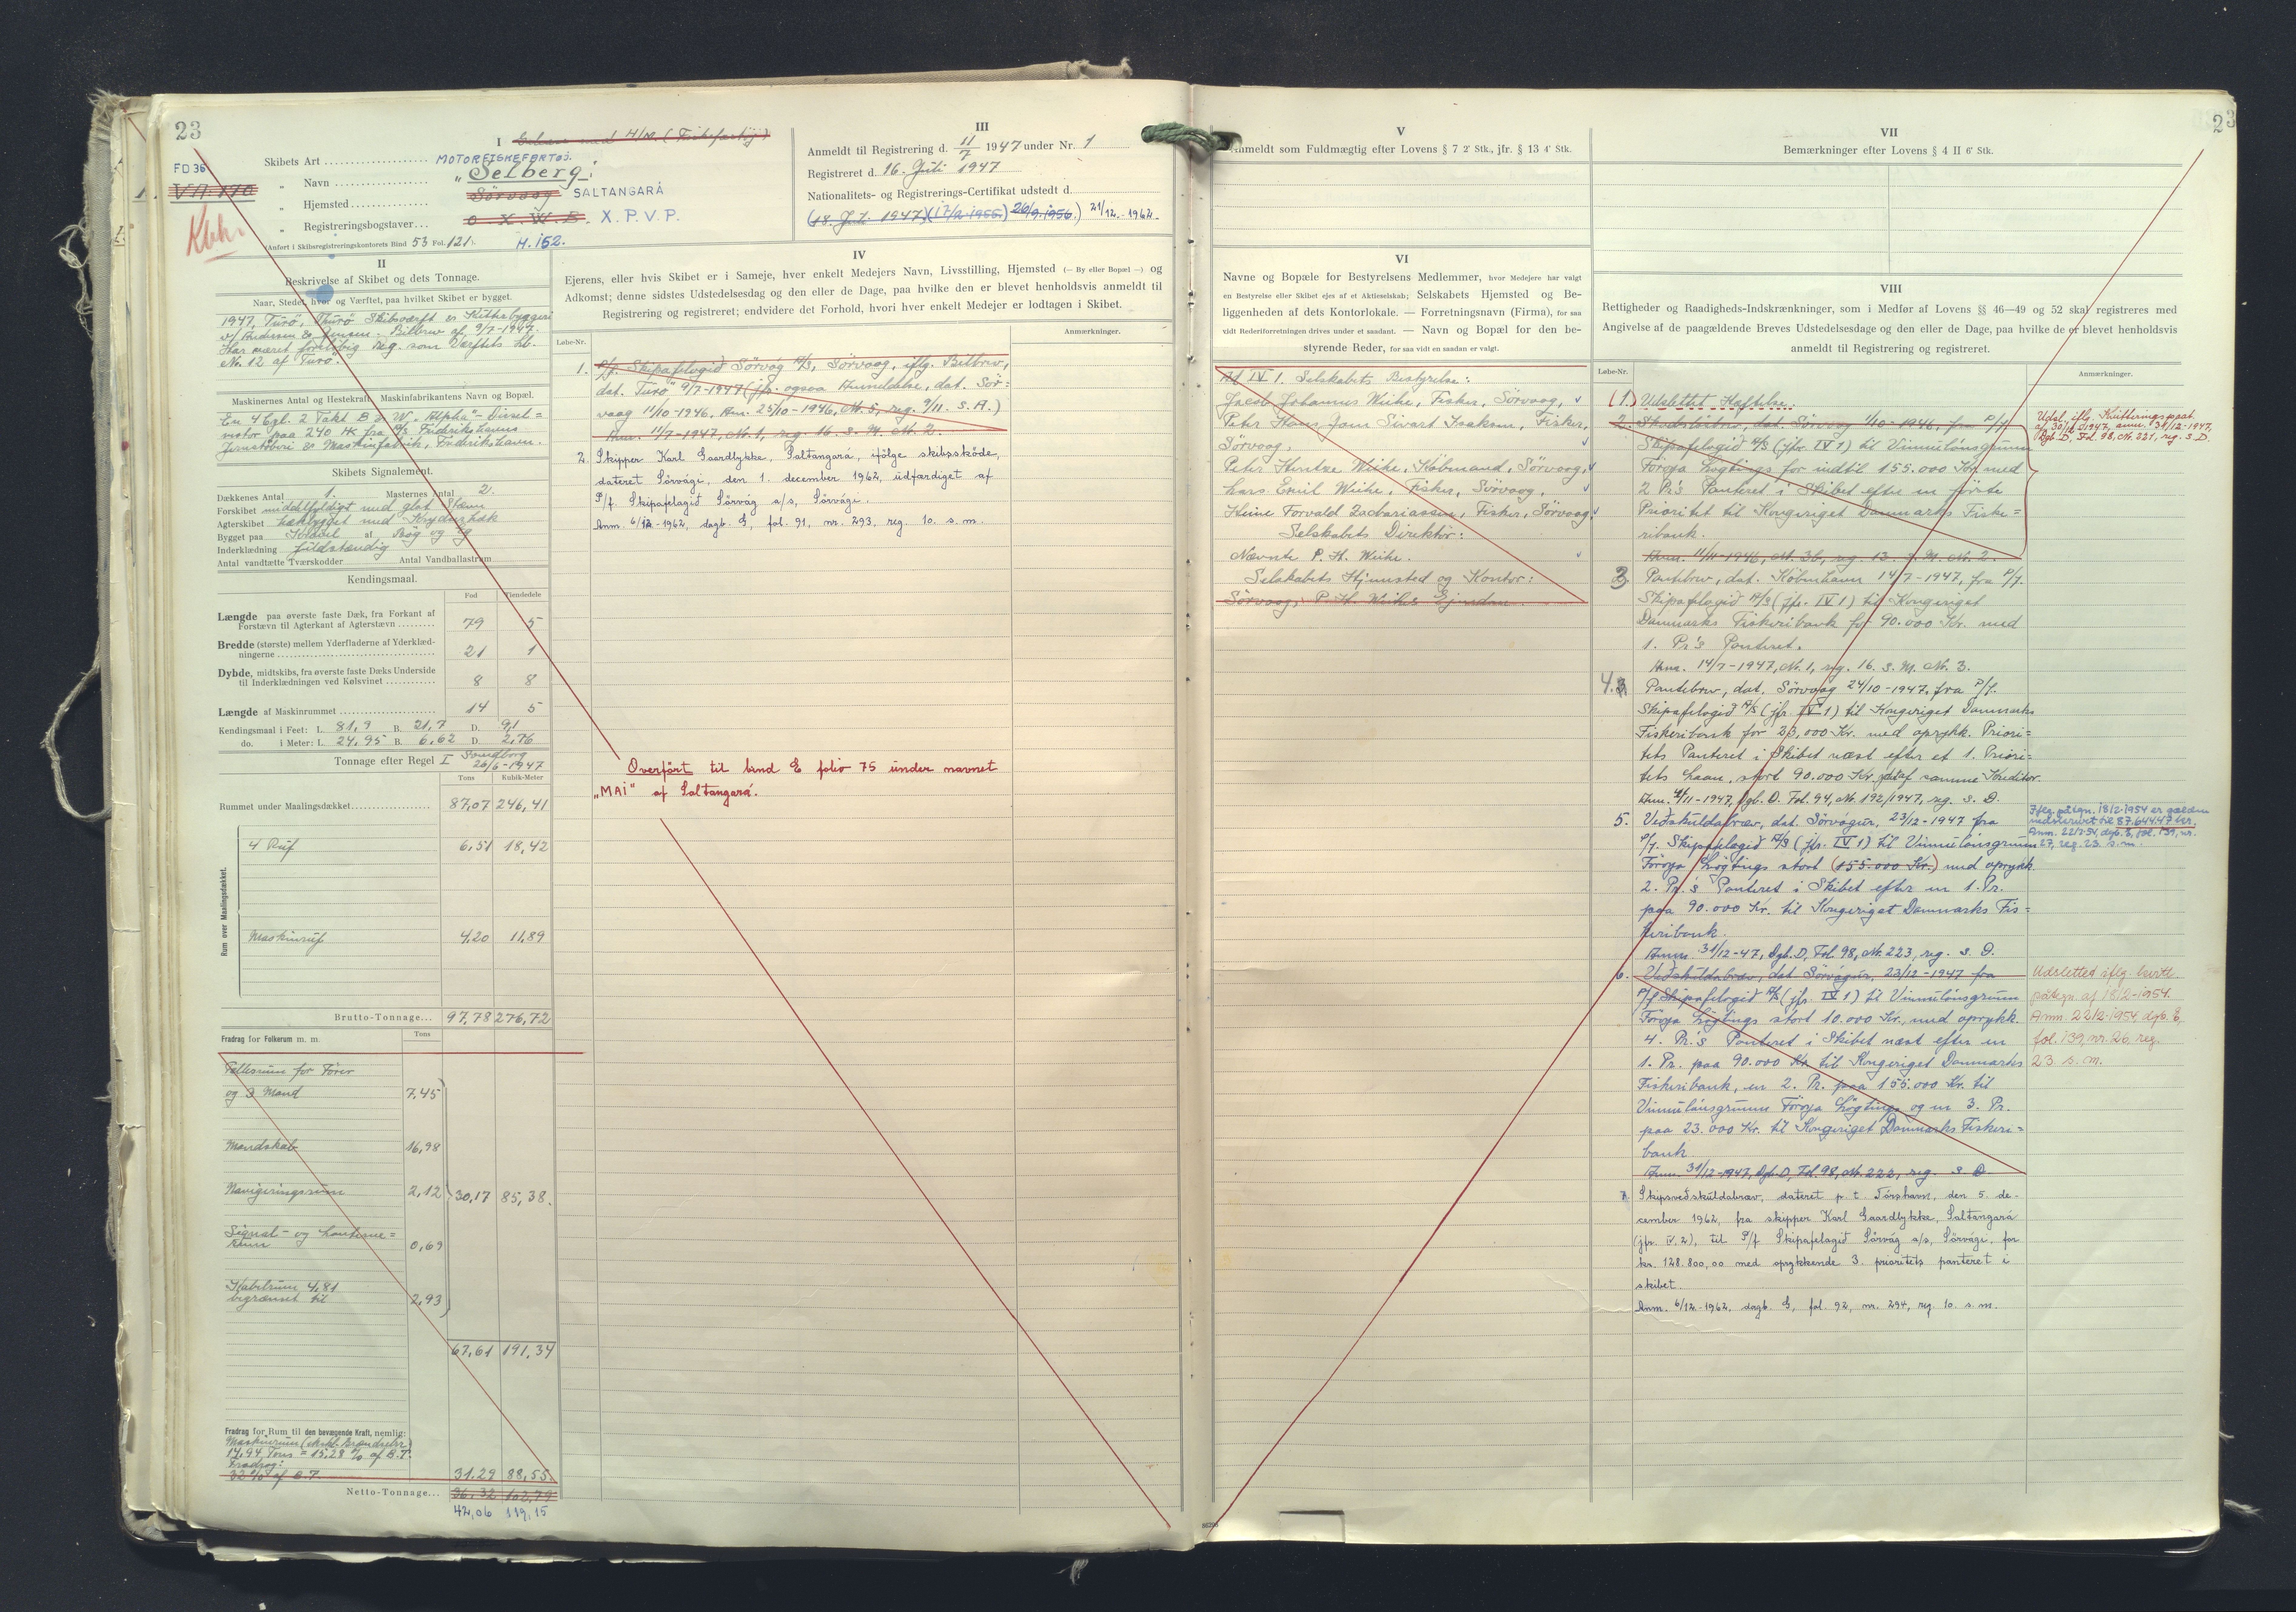 23
I
Galease med H/M. (Fiskefartöj)
FD 36
VN. 170
Kbh.
Skibets Art
MOTORFISKEFARTØJ.
" Navn
"Selberg".
" Hjemsted
Sörvaag SALTANGARÁ
" Registreringsbogstaver
O X W B. X. P. V. P.
(Anført i Skibsregistreringskontorets Bind 53 Fol. 121).
H. 152.
III
Anmeldt til Registrering d. 11/7 1947 under Nr. 1
Registreret d. 16. Juli 1947
Nationalitets- og Registrerings-Certifikat udstedt d.
(18. Juli 1947) (17/2 1955) 26/9.1956.) 21/12.-1962.
II
Beskrivelse af Skibet og dets Tonnage.
Naar, Stedet, hvor og Værftet, paa hvilket Skibet er bygget.
1947, Turö, Thurö Skibsværft & Kutterbyggeri
v/ Andersen & Jensen. Bilbrev af 9/7-1947.
Har været foreløbig reg. som Værftets Lb.
No. 12 af Turö.
Maskinernes Antal og Hestekraft. Maskinfabrikantens Navn og Bopæl.
En 4 Cyl. 2 Takt B & W. Alpha"-Diesel=
motor paa 240 HK fra A/S Frederikshavns
Jernstöberi & Maskinfabrik, Frederikshavn.
Skibets Signalement.
Dækkenes Antal 1. Masternes Antal 2.
Forskibet middelfyldigt med glat Stævn
Agterskibet hækbygget med Krydserhæk
Bygget paa Kravel af Bøg og Eg
Inderklædning fuldstændig
Antal vandtætte Tværskodder Antal Vandballastrum
Kendingsmaal.
Fod Tiendedele
Længde paa øverste faste Dæk, fra Forkant af
Forstævn til Agterkant af Agterstævn 79 5
Bredde (største) mellem Yderfladerne af Yderklæd-
ningerne 21 1
Dybde, midtskibs, fra øverste faste Dæks Underside
til Inderklædningen ved Kølsvinet 8 8
Længde af Maskinrummet 14 5
Kendingsmaal i Feet: L. 81,9 B. 21,7 D. 9,1
do. i Meter: L. 24,95 B. 6,62 D. 2,76
Tonnage efter Regel I Svendborg
26/6-1947
Tons Kubik-Meter
Rummet under Maalingsdækket 87,07 246,41
Rum over Maalingsdækket.
4 Ruf 6,51 18,42
Maskinruf 4,20 11,89
Brutto-Tonnage... 97,78 276,72
Fradrag for Folkerum m. m. Tons
Fællesrum for Fører
og 3 Mand 7,45
Mandskab 16,98
Navigeringsrum 2,12 30,17 85,38.
Signal- og Lanterne=
rum 0,69
Kabelrum 4,81
begrænset til 2,93
67,61 191,34
Fradrag for Rum til den bevægende Kraft, nemlig:
Maskinrum (ekskl. Brændselsr.)
14,94 Tons = 15,28 % af B.T.
Fradrag:
32 % af B.T. 31,29 88,55.
Netto-Tonnage... 36,32 102,79
42,06 119,15
IV
Ejerens, eller hvis Skibet er i Sameje, hver enkelt Medejers Navn, Livsstilling, Hjemsted (— By eller Bopæl —) og
Adkomst; denne sidstes Udstedelsesdag og den eller de Dage, paa hvilke den er blevet henholdsvis anmeldt til
Registrering og registreret; endvidere det Forhold, hvori hver enkelt Medejer er lodtagen i Skibet.
Løbe-Nr.
Anmærkning.
1. P/f. Skipafelagið Sörvág A/S, Sörvaag, iflg. Bilbrev,
dat. Turö 9/7-1947 (jfr. ogsaa Anmeldelse, dat. Sör=
vaag 11/10-1946, Anm. 25/10-1946, Nr. 5, reg. 9/11. s. A.)
Anm. 11/7-1947, Nr. 1, reg. 16. s. M. Nr. 2.
2. Skipper Karl Gaardlykke, Saltangará, ifölge skibsskøde,
dateret Sörvági, den 1. december 1962, udfærdiget af
P/f. Skipafelagið Sörvág a/s, Sörvági.
Anm. 6/12-1962, dagb. G, fol. 91, nr. 293, reg. 10. s. m.
Overfört til bind E folio 75 under navnet
„MAI" af Saltangará.
V
Anmeldt som Fuldmægtig efter Lovens § 7 2' Stk., jfr. § 13 4' Stk.
VI
Navne og Bopæle for Bestyrelsens Medlemmer, hvor Medejere har valgt
en Bestyrelse eller Skibet ejes af et Aktieselskab; Selskabets Hjemsted og Be-
liggenheden af dets Kontorlokale. — Forretningsnavn (Firma), for saa
vidt Rederiforretningen drives under et saadant. — Navn og Bopæl for den be-
styrende Reder, for saa vidt en saadan er valgt.
Ad IV 1. Selskabets Bestyrelse:
Jacob Johannus Weihe, Fisker, Sörvaag,
Peter Hans Jom Sivart Isaksen, Fisker,
Sörvaag,
Peter Hentze Weihe, Købmand, Sörvaag,
Lars Emil Weihe, Fisker, Sörvaag,
Heine Torvald Zachariassen, Fisker, Sörvaag.
Selskabets Direktör:
Nævnte P. H. Weihe.
Selskabets Hjemsted og Kontor:
Sörvaag, P. H. Weihes Ejendom.
VII
Bemærkninger efter Lovens § 4 II 6' Stk.
23
VIII
Rettigheder og Raadigheds-Indskrænkninger, som i Medfør af Lovens §§ 46—49 og 52 skal registreres med
Angivelse af de paagældende Breves Udstedelsesdage og den eller de Dage, paa hvilke de er blevet henholdsvis
anmeldt til Registrering og registreret.
Løbe-Nr.
Anmærkning.
(1.) Udslettet Hæftelse.
2. Skadesløsbrev, dat. Sörvaag 1/10-1946, fra P/f.
Skipafelagið A/S (jfr. IV 1) til Vinnulánsgrunn
Föroya Løgtings for indtil 155.000 Kr. med
2 Pr's Panteret i Skibet efter en første
Prioritet til Kongeriget Danmarks Fiske=
ribank.
Anm. 11/11-1946, Nr. 36, reg. 13. s. M. Nr. 2.
Udsl. iflg. Kvitteringspaat.
af 30/12-1947, anm. 31/12-1947,
Dgb. D, Fol. 98, Nr. 221, reg. s. D.
3. Pantebrev, dat. København 14/7-1947, fra P/f.
Skipafelagið A/S (jfr. IV 1) til Kongeriget
Danmarks Fiskeribank for 90.000 Kr. med
1. Pr's Panteret.
Anm. 14/7-1947, Nr. 1, reg. 16. s. M. Nr. 3.
4. Pantebrev, dat. Sörvaag 24/10-1947, fra P/f.
Skipafelagið A/S (jfr. IV 1) til Kongeriget Danmarks
Fiskeribank for 23,000 Kr. med oprykk. Priori=
tets Panteret i Skibet næst efter et 1. Priori=
tets Laan, stort 90.000 Kr. til samme Kreditor.
Anm. 4/11-1947, Dgb. D. Fol. 94, Nr. 192/1947, reg. s. D.
5. Veðskuldabræv, dat. Sörvágur, 23/12-1947 fra
P/f. Skipafelagið A/S (jfr. IV 1) til Vinnulánsgrunn
Föroya Løgtings stort (155.000 Kr.) med oprykk.
2. Pr.'s Panteret i Skibet efter en 1. Pr.
paa 90.000 Kr. til Kongeriget Danmarks Fis=
keribank.
Anm. 31/12-47, Dgb. D, Fol. 98, Nr. 223, reg. s. D.
Iflg. påtegn. 18/2-1954 er gælden
nedskrevet til 87.644.47 kr.
Anm. 22/2-54, dagb. E, fol. 139, nr.
27, reg. 23. s. m.
6. Veðskuldabræv, dat Sörvágur, 23/12-1947 fra
P/f Skipafelagið A/S (jfr. IV 1) til Vinnulánsgrunn
Föroya Løgtings stort 10.000 Kr., med oprykk.
4. Pr.s Panteret i Skibet næst efter en
1. Pr. paa 90.000 Kr til Kongeriget Danmarks
Fiskeribank, en 2. Pr. paa 155.000 Kr. til
Vinnulánsgrunn Föroya Løgtings og en 3. Pr.
paa 23.000 Kr. til Kongeriget Danmarks Fiskeri=
bank
Anm. 31/12-1947, Dgb. D, Fol. 98, Nr. 222, reg. s. D.
Udslettet iflg. kvitt.
påtegn. af 18/2-1954.
Anm. 22/2-1954, dgb. E,
fol. 139, nr. 26, reg.
23. s. m.
7. Skipsveðskuldabræv, dateret p. t. Tórshavn, den 5. de-
cember 1962, fra skipper Karl Gaardlykke, Saltangará
(jfr. IV. 2), til P/f Skipafelagið Sörvág a/s, Sörvági, for
kr. 128.800,00 med oprykkende 3. prioritets panteret i
skibet.
Anm. 6/12-1962, dagb. G, fol. 92, nr. 294, reg. 10. s. m.